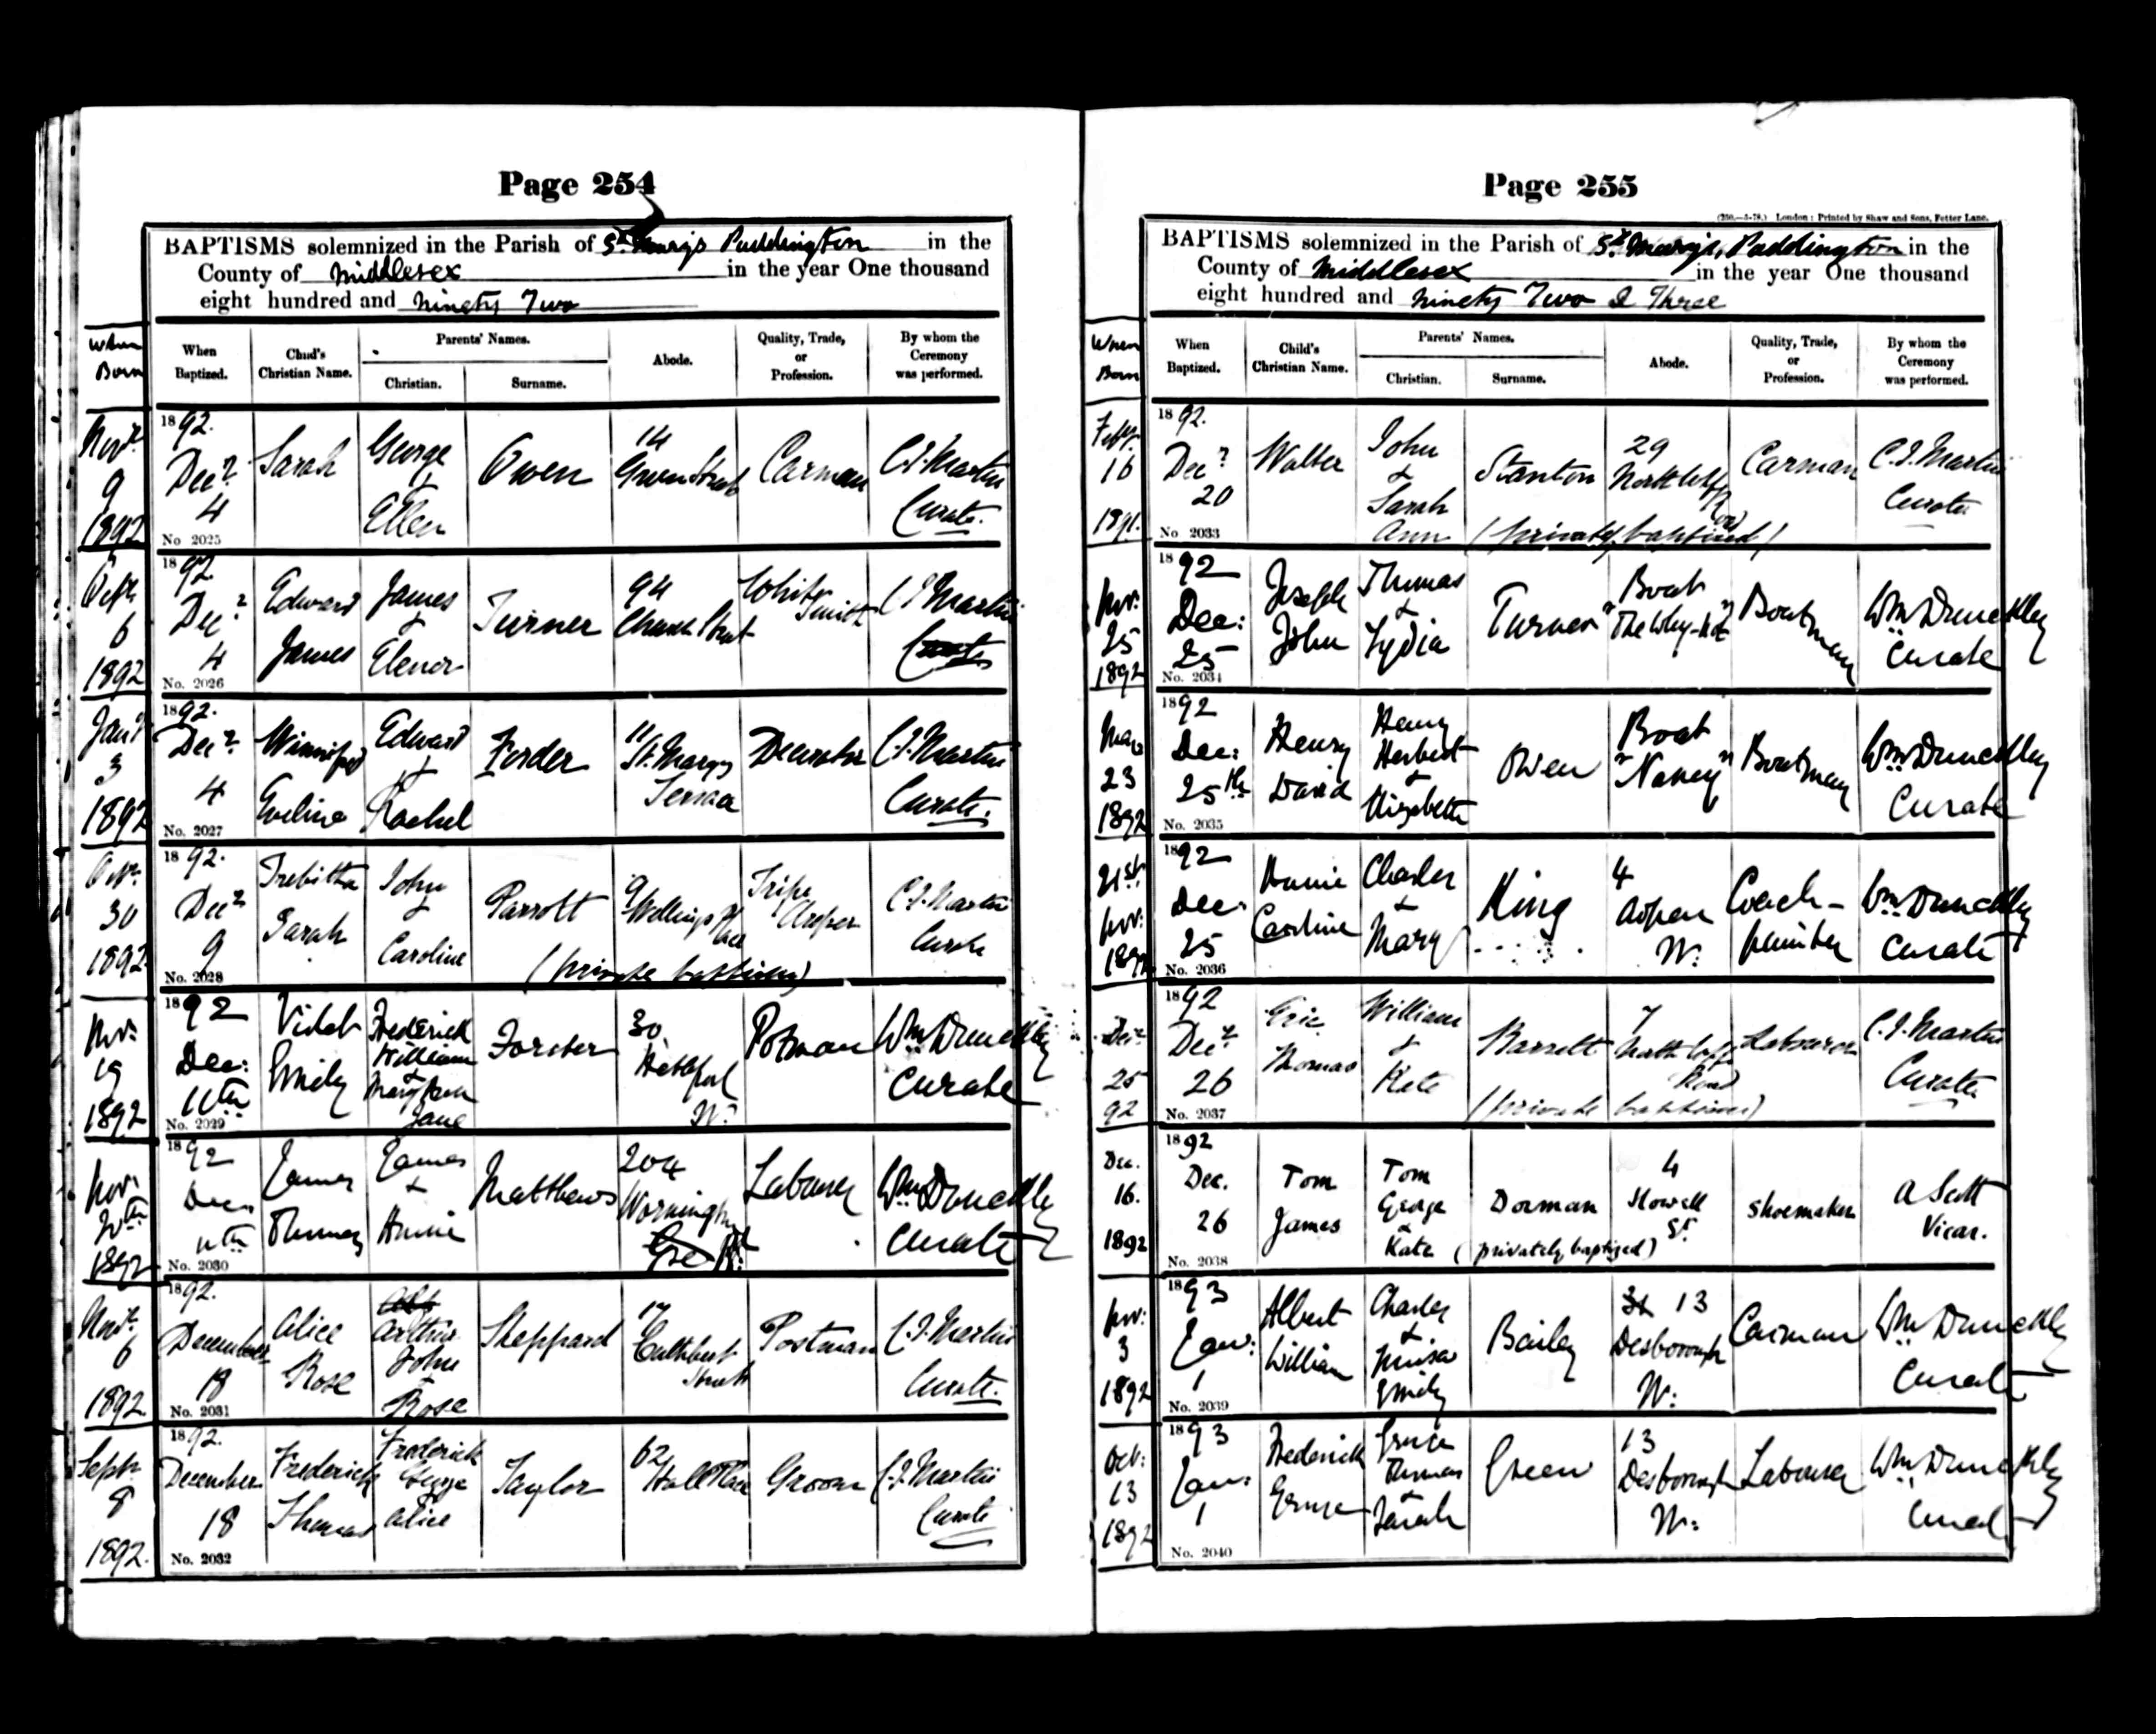 Page 254
BAPTISMS solemnized in the Parish of St Mary's Paddington in the
County of Middlesex in the year One thousand
eight hundred and Ninety Two
When Born
When Baptized.
Child's Christian Name.
Parents' Names.
Christian.
Surname.
Abode.
Quality, Trade, or Profession.
By whom the Ceremony was performed.
Novr 9 1892
1892. Decr 4
Sarah
George & Ellen
Owen
14 Green Street
Carman
C.J. Martin Curate.
No 2025
Septr 6 1892
1892 Decr 4
Edward James
James & Elener
Turner
94 Church Street
White Smith
C J Martin Curate
No. 2026
Jany 3 1892
1892. Decr 4
Winnifred Eveline
Edward & Rachel
Forder
11 St. Marys Terrace
Decorator
C.J. Martin Curate.
No. 2027
Octr. 30 1892.
1892. Decr 9
Sarah
John & Caroline
Parrott
9 Place
Tripe
C.J. Martin Curate
(private baptism)
No. 2028
Nov: 19 1892
1892 Dec: 11th
Violet Emily
Frederick William & Jane
Forster
30 W:
Potman
Wm Dunckley Curate
No. 2029
Nov. 20th 1892
1892 Dec. 11th
James Thomas
James & Annie
Matthews
204 Wornington Rd
Labourer
Wm Dunckley Curate
No. 2030
Novr. 6 1892
1892. December 18
Alice Rose
Arthur John & Rose
Sheppard
17 Cuthbert Street
Postman
C.J. Martin Curate.
No. 2031
Septr 8 1892.
1892. December 18
Frederick Thomas
Frederick George Alice
Taylor
62 Hall Place
Groom
C.J. Martin Curate
No. 2032
Page 255
(250.—5-78.) London: Printed by Shaw and Sons, Fetter Lane.
BAPTISMS solemnized in the Parish of St. Mary's, Paddington in the
County of Middlesex in the year One thousand
eight hundred and Ninety Two & Three
When Born
When Baptized.
Child's Christian Name.
Parents' Names.
Christian.
Surname.
Abode.
Quality, Trade, or Profession.
By whom the Ceremony was performed.
16 1891.
1892. Decr 20
Walter
John & Sarah Ann
Stanton
29 Road
Carman
C.J. Martin Curate
(privately baptized)
No 2033
Nov: 25 1892
1892 Dec: 25
Joseph John
Thomas & Lydia
Turner
Boat "The Why-Not"
Boatman
Wm Dunckley Curate
No. 2034
23 1892
1892 Dec: 25th
Henry David
Henry Herbert & Elizabeth
Owen
Boat "Nancy"
Boatman
Wm Dunckley Curate
No. 2035
21st Nov: 1892
1892 Dec. 25
Annie Caroline
Charles & Mary
King
4 W:
Coach-painter
Wm Dunckley Curate
No. 2036
Decr 25 92
1892 Decr 26
Eric Thomas
William & Kate
Barrett
7 Road
Labourer
C.J. Martin Curate
(private baptism)
No. 2037
Dec. 16. 1892
1892 Dec. 26
Tom James
Tom George & Kate
Dorman
4 Howell St.
shoemaker
A Scott Vicar.
(privately baptized)
No. 2038
Nov: 3 1892
1893 Jan: 1
Albert William
Charles & Louisa Emily
Bailey
31 13 Desborough W:
Carman
Wm Dunckley Curate
No. 2039
Oct: 13 1892
1893 Jan: 1
Frederick George
George Thomas & Sarah
Green
13 Desborough W:
Labourer
Wm Dunckley Curate
No. 2040